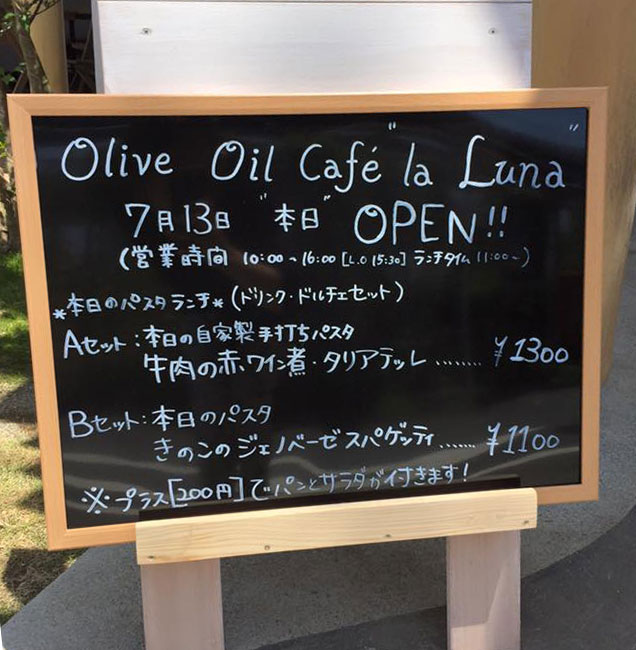 Olive Oil Café "la Luna"
7月13日 "本日" OPEN!!
(営業時間 10:00~16:00 [L.O 15:30] ランチタイム 11:00~)
*本日のパスタランチ* (ドリンク・ドルチェセット)
Aセット:本日の自家製手打ちパスタ
牛肉の赤ワイン煮・タリアテッレ ........ ¥1300
Bセット:本日のパスタ
きのこのジェノベーゼスパゲッティ ...... ¥1100
※プラス[200円]でパンとサラダが付きます!